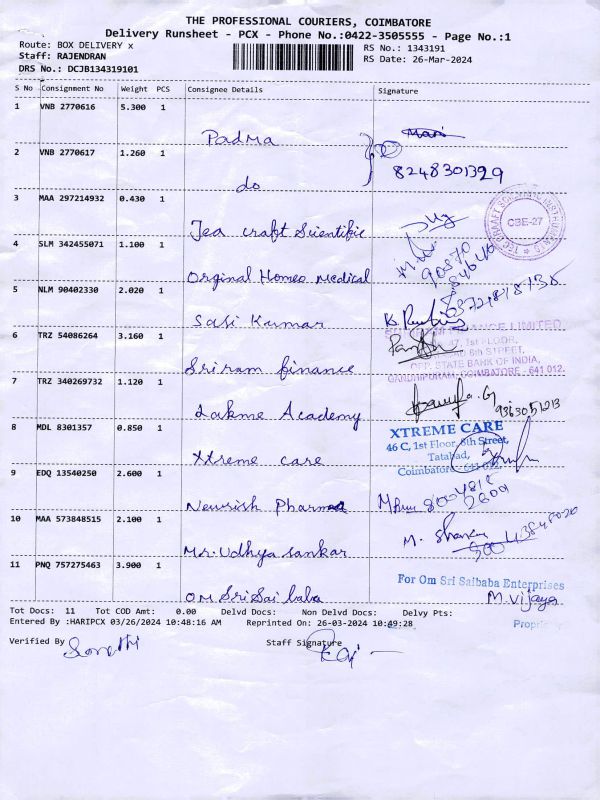 THE PROFESSIONAL COURIERS, COIMBATORE
Delivery Runsheet - PCX - Phone No.:0422-3505555 - Page No.:1
Route: BOX DELIVERY x
RS No.: 1343191
Staff: RAJENDRAN
RS Date: 26-Mar-2024
DRS No.: DCJB134319101
S No Consignment No Weight PCS Consignee Details Signature
1 VNB 2770616 5.300 1
Padma
Mari
2 VNB 2770617 1.260 1
do
8248301329
3 MAA 297214932 0.430 1
Tea craft Scientific
CBE-27
4 SLM 342455071 1.100 1
Orginal Homeo medical
5 NLM 90402330 2.020 1
Sasi Kumar
6 TRZ 54086264 3.160 1
Sriram finance
FINANCE LIMITED
47, 1st FLOOR,
6th STREET,
OPP. STATE BANK OF INDIA,
GANDHIPURAM, COIMBATORE - 641 012.
7 TRZ 340269732 1.120 1
Lakme Academy
9363051013
8 MDL 8301357 0.850 1
Xtreme care
XTREME CARE
46 C, 1st Floor, 8th Street,
Tatabad,
Coimbatore - 641 012.
9 EDQ 13540250 2.600 1
Neurish Pharmaa
10 MAA 573848515 2.100 1
Mr. Udhya sankar
M.
11 PNQ 757275463 3.900 1
OM Sri Sai baba
For Om Sri Saibaba Enterprises
M.Vijaya
Tot Docs: 11 Tot COD Amt: 0.00 Delvd Docs: Non Delvd Docs: Delvy Pts:
Entered By :HARIPCX 03/26/2024 10:48:16 AM Reprinted On: 26-03-2024 10:49:28
Propri
Verified By
Staff Signature
Raj